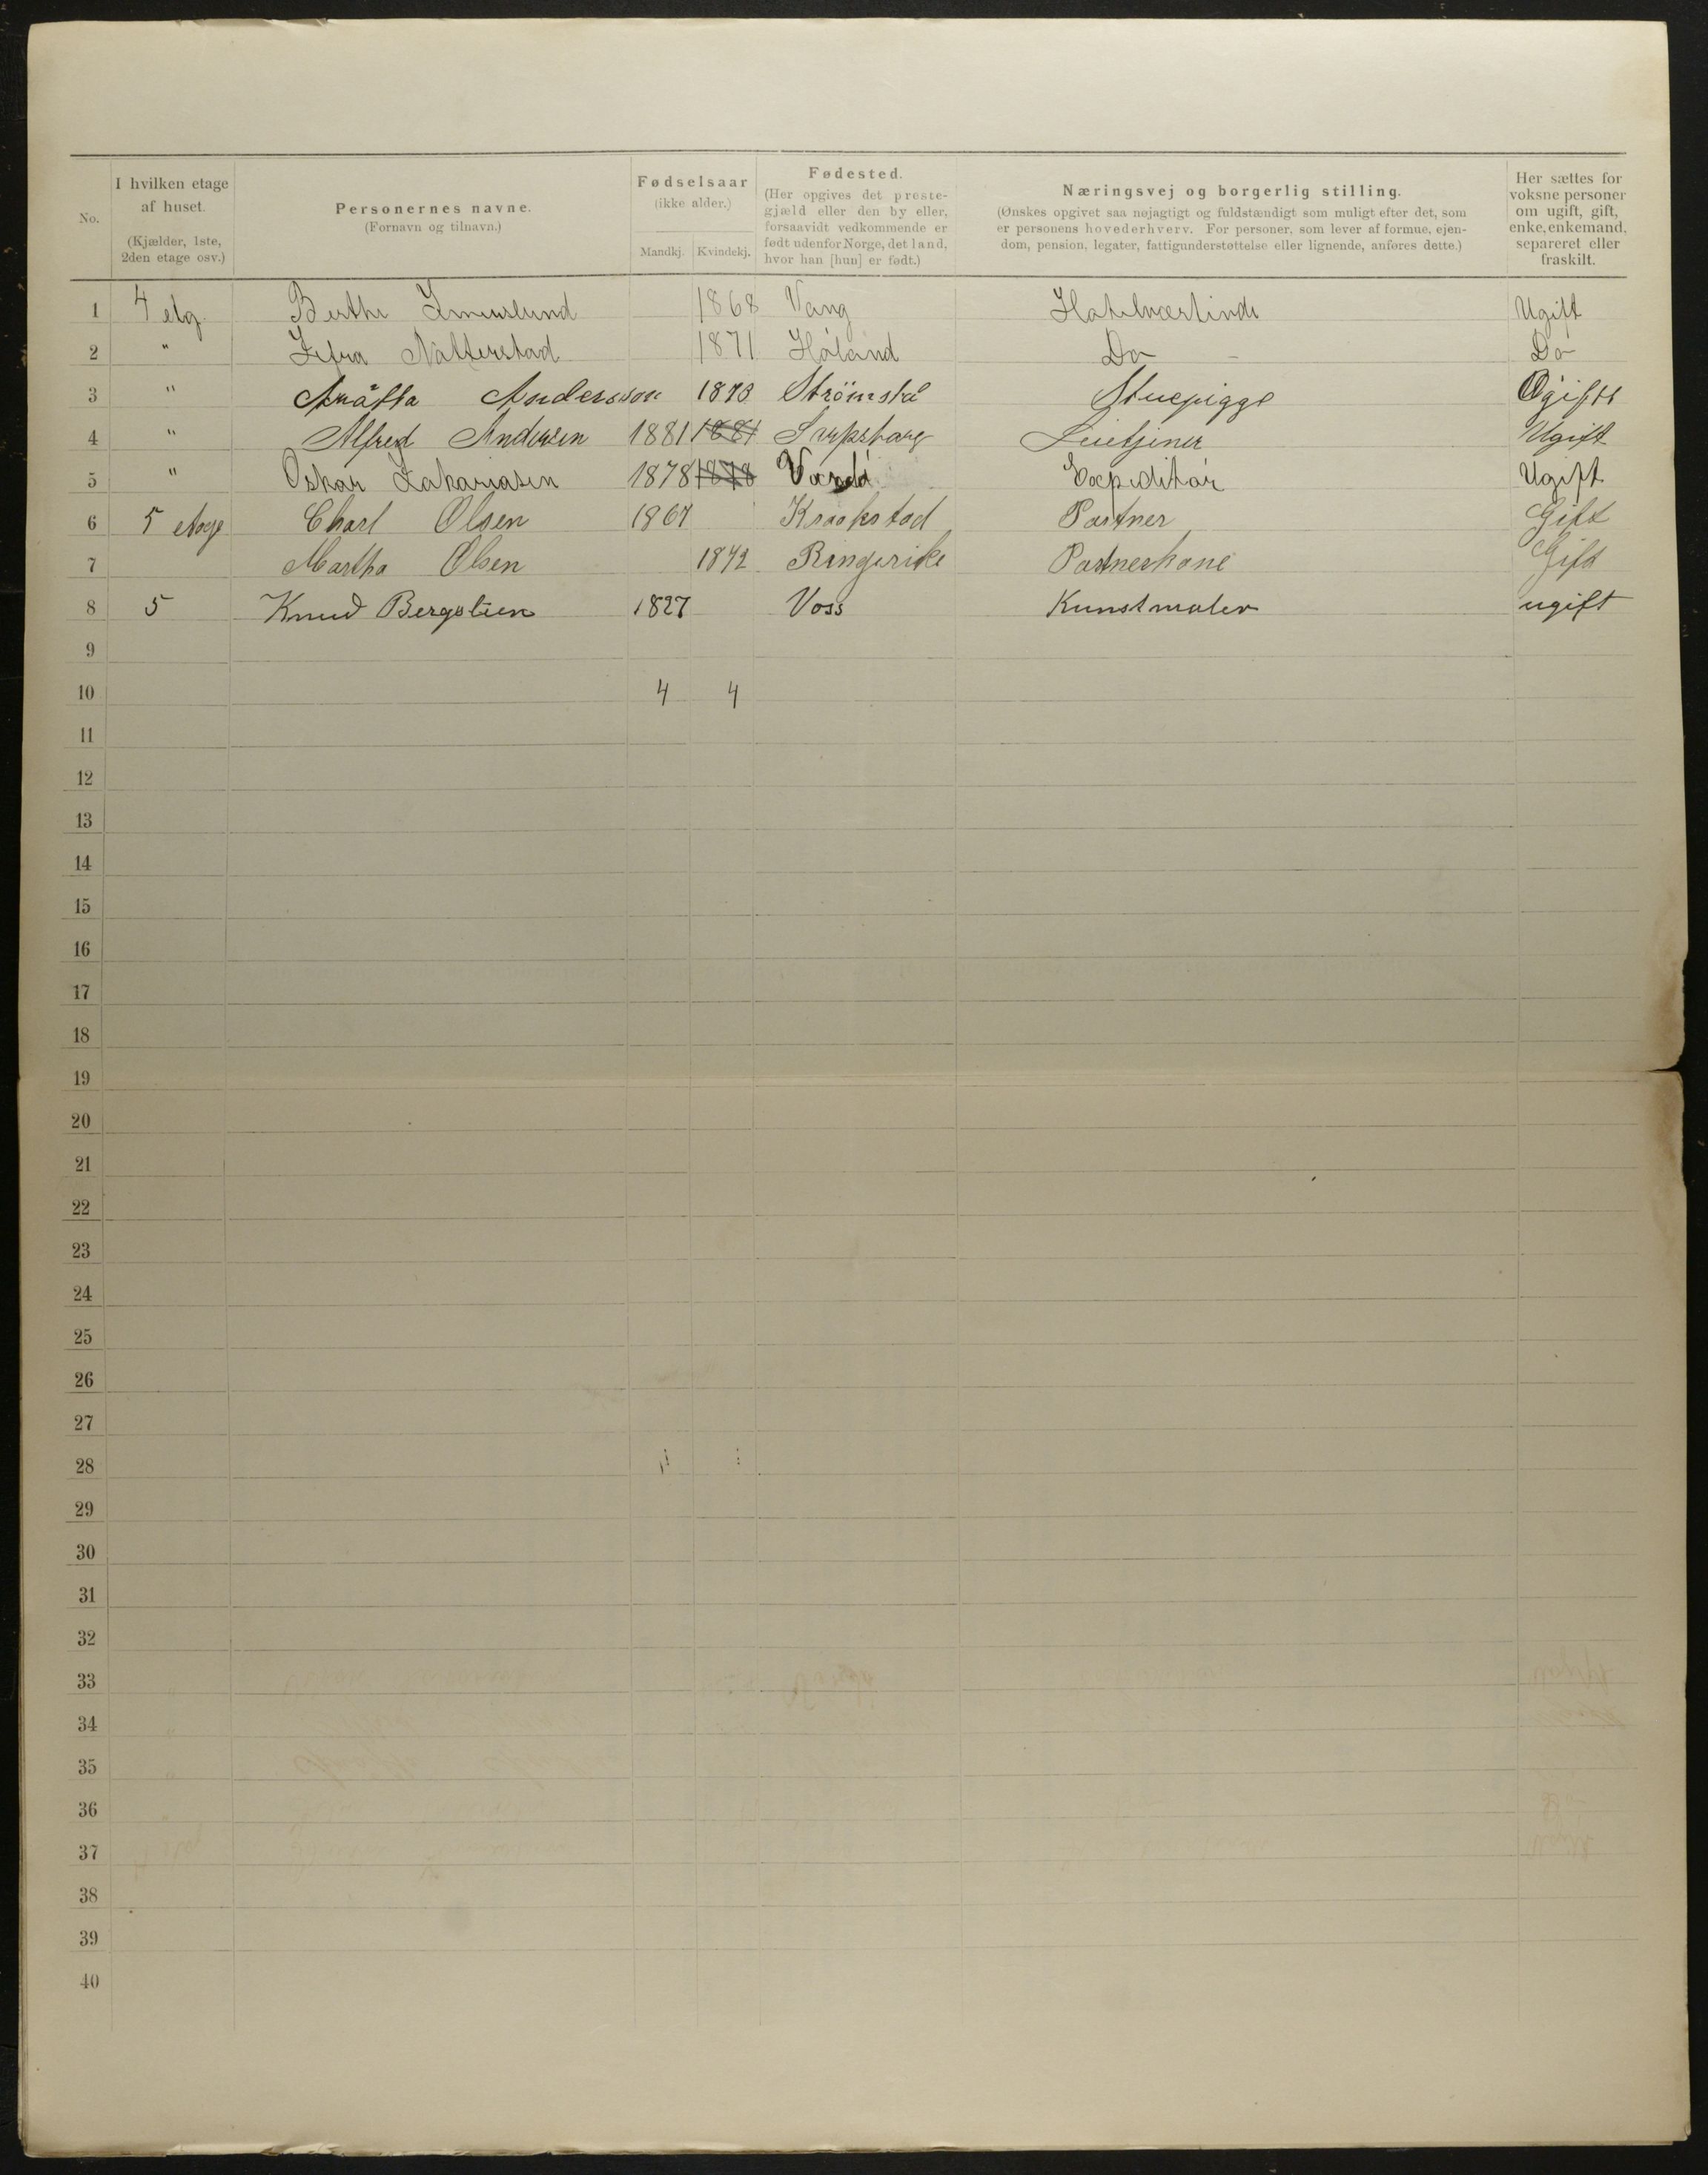 No.
I hvilken etage af huset. (Kjælder, 1ste, 2den etage osv.)
Personernes navne. (Fornavn og tilnavn.)
Fødselsaar (ikke alder.) Mandkj. Kvindekj.
Fødested. (Her opgives det prestegjæld eller den by eller, forsaavidt vedkommende er født udenfor Norge, det land, hvor han [hun] er født.)
Næringsvej og borgerlig stilling. (Ønskes opgivet saa nøjagtigt og fuldstændigt som muligt efter det, som er personens hovederhverv. For personer, som lever af formue, ejendom, pension, legater, fattigunderstøttelse eller lignende, anføres dette.)
Her sættes for voksne personer om ugift, gift, enke, enkemand, separeret eller fraskilt.
1 4 etg. Berthe 1868 Vang Hotelværtinde Ugift
2 " Natterstad 1871 Høland Do - Do
3 " Andersson 1873 Strömstå Stuepigge Ogift
4 " Alfred Andersen 1881 1881 Sarpsborg Ugift
5 " Oskar Zakariasen 1878 1878 Vardø Expeditør Ugift
6 5 etage Charl Olsen 1867 Kraakstad Portner Gift
7 Martha Olsen 1872 Ringerike Portnerkone Gift
8 5 Knud Bergslien 1827 Voss Kunstmaler ugift
9
10 4 4
11
12
13
14
15
16
17
18
19
20
21
22
23
24
25
26
27
28
29
30
31
32
33
34
35
36
37
38
39
40